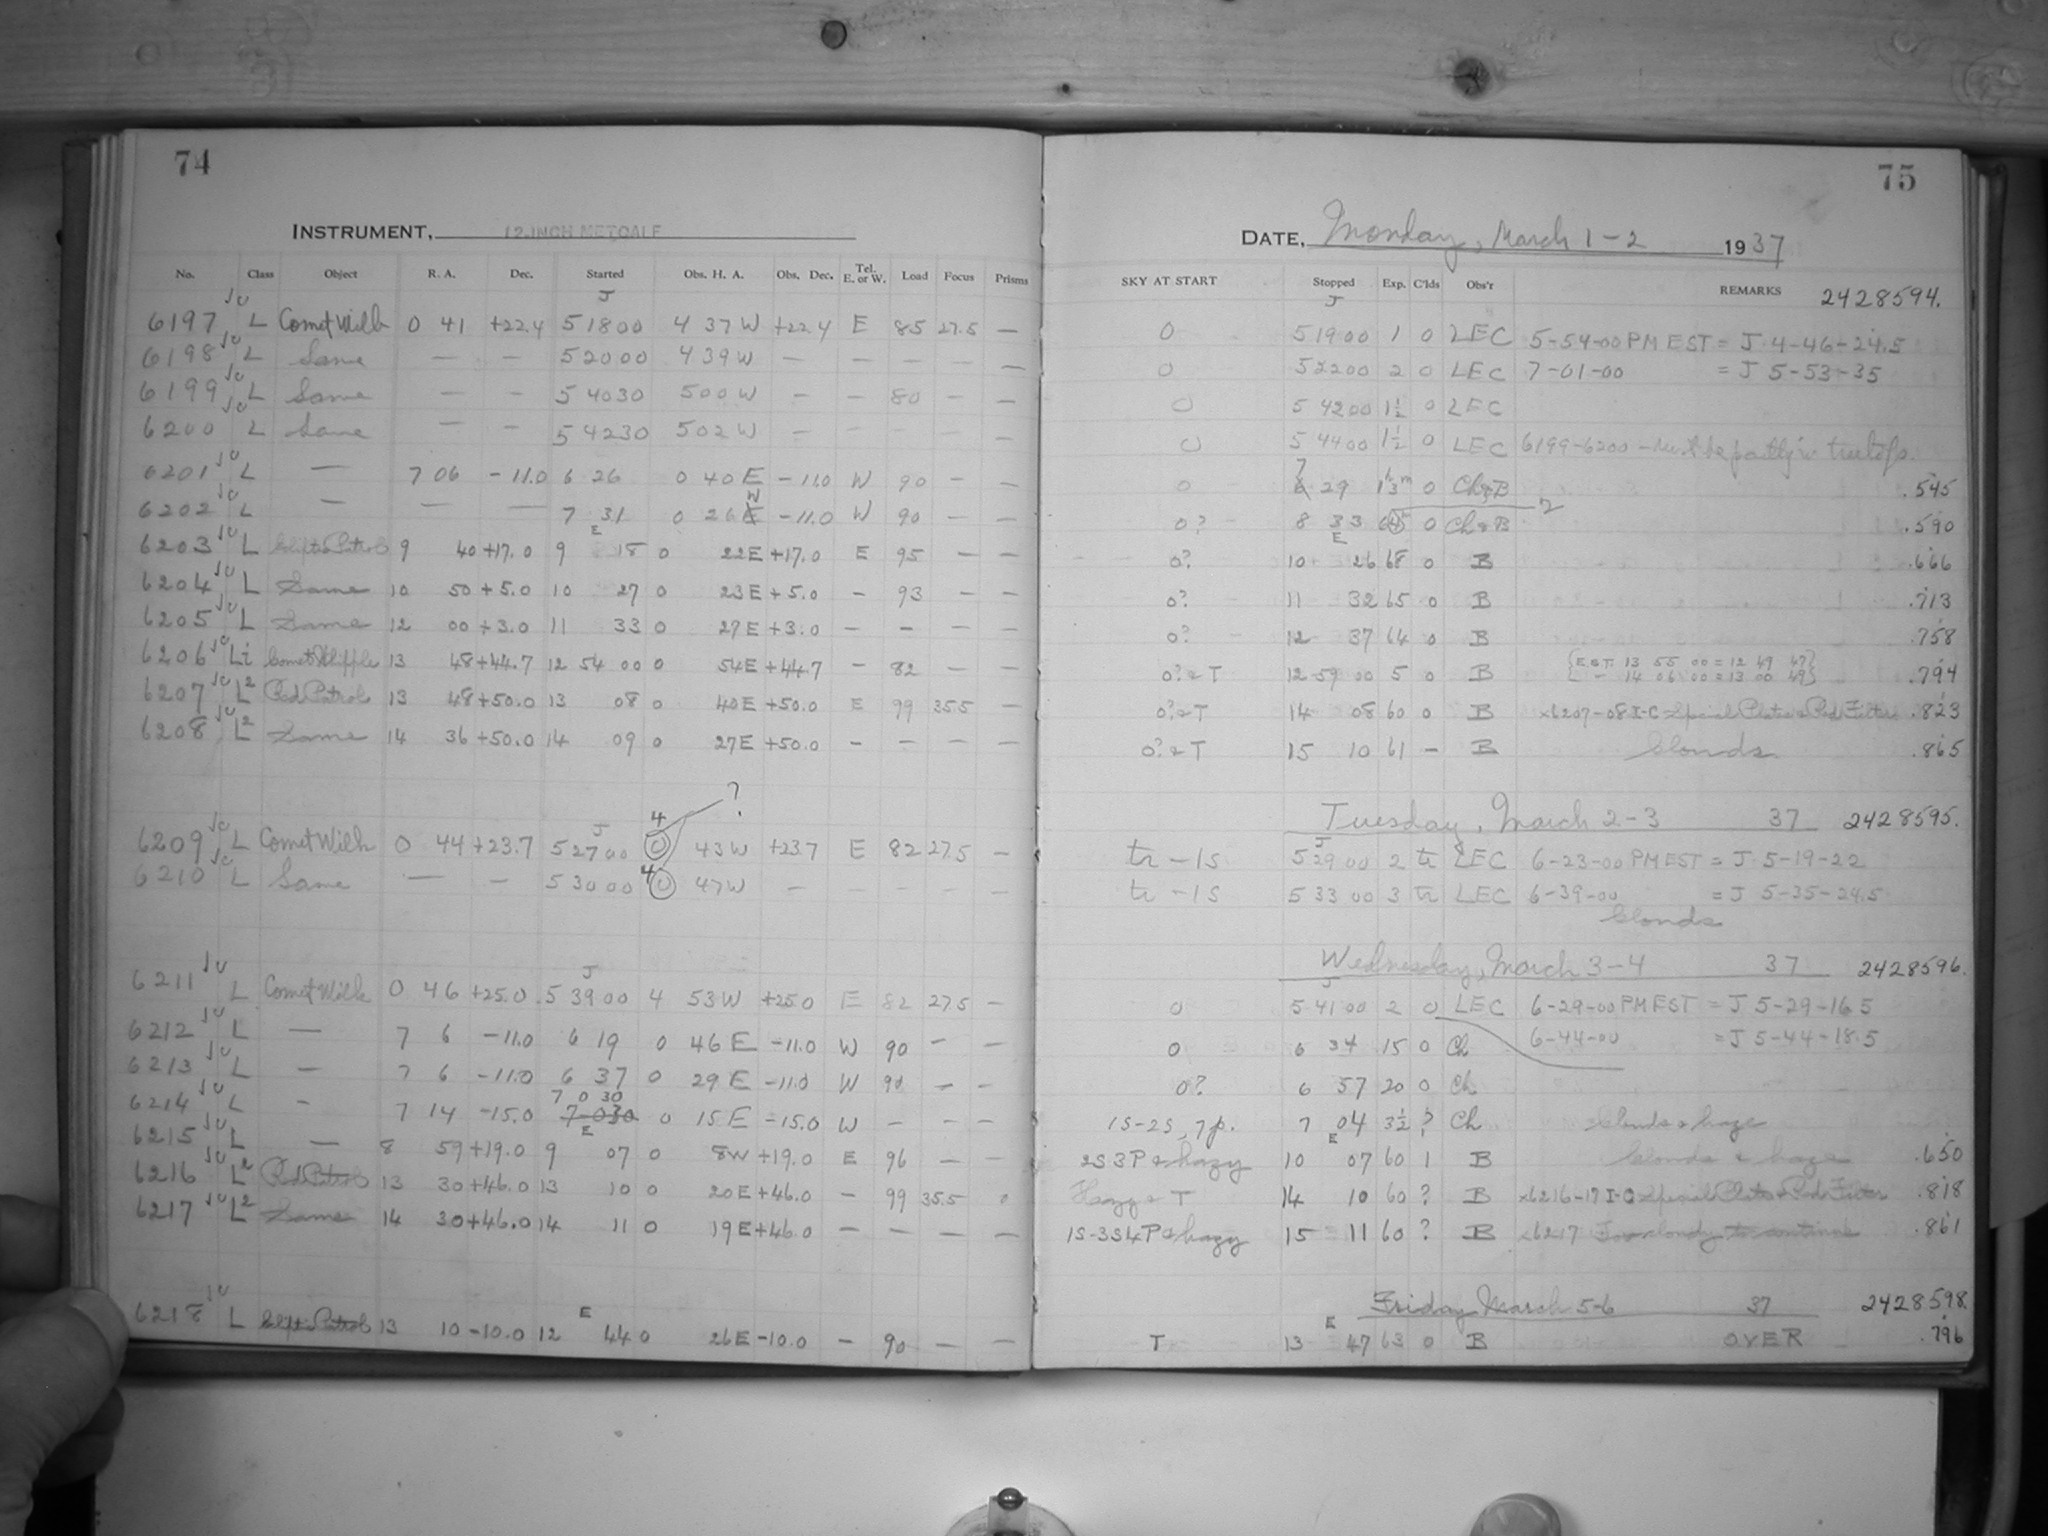 74
INSTRUMENT, 12-INCH METCALF
No. Class Object R. A. Dec. Started Obs. H. A. Obs. Dec. Tel. E. or W. Load Focus Prisms
J
6197 L Comet Wilk 0 41 +22.4 5 18 00 4 37 W +22.4 E 85 27.5 —
6198 L Same — — 5 20 00 4 39 W — — — — —
6199 L Same — — 5 40 30 5 00 W — — 80 — —
6200 L Same — — 5 42 30 5 02 W — — — — —
6201 L — 7 06 -11.0 6 26 0 40 E -11.0 W 90 — —
6202 L — — — 7 31 0 26 W -11.0 W 90 — —
E
6203 L Ecliptic Patrol 9 40 +17.0 9 18 0 22 E +17.0 E 95 — —
6204 L Same 10 50 +5.0 10 27 0 23 E +5.0 — 93 — —
6205 L Same 12 00 +3.0 11 33 0 29 E +3.0 — — — —
6206 Li Comet Whipple 13 48 +44.7 12 54 00 0 54 E +44.7 — 82 — —
6207 L2 Red Patrol 13 48 +50.0 13 08 0 40 E +50.0 E 99 35.5 —
6208 L2 Same 14 36 +50.0 14 09 0 27 E +50.0 — — — —
?
J 4
6209 L Comet Wilk 0 44 +23.7 5 27 00 0 43 W +23.7 E 82 27.5 —
6210 L Same — — 5 30 00 4 0 47 W — — — — —
J
6211 L Comet Wilk 0 46 +25.0 5 39 00 4 53 W +25.0 E 82 27.5 —
6212 L — 7 6 -11.0 6 19 0 46 E -11.0 W 90 — —
6213 L — 7 6 -11.0 6 37 0 29 E -11.0 W 90 — —
7 0 30
6214 L — 7 14 -15.0 7 030 0 15 E -15.0 W — — —
E
6215 L — 8 59 +19.0 9 07 0 8 W +19.0 E 96 — —
6216 L2 Red Patrol 13 30 +46.0 13 10 0 20 E +46.0 — 99 35.5 0
6217 L2 Same 14 30 +46.0 14 11 0 19 E +46.0 — — — —
E
6218 L Ecliptic Patrol 13 10 -10.0 12 44 0 26 E -10.0 — 90 — —
75
DATE, Monday, March 1-2 1937
SKY AT START Stopped Exp. C'lds Obs'r REMARKS 2428594.
J
0 5 19 00 1 0 LEC 5-54-00 PM EST = J 4-46-24.5
0 5 22 00 2 0 LEC 7-01-00 = J 5-53-35
0 5 42 00 1½ 0 LEC
0 5 44 00 1½ 0 LEC 6199-6200 - must be partly in treetops.
7
0 6 29 1h 3m 0 Ch&B .545
0? 8 33 64 0 Ch&B ? .590
E
0? 10 26 68 0 B .666
0? 11 32 65 0 B .713
0? 12 37 64 0 B .758
0? & T 12 59 00 5 0 B {E.S.T. 13 55 00 = 12 49 47} .794
{ — 14 06 00 = 13 00 49}
0? & T 14 08 60 0 B x6207-08 I-C Special Plates & Red Filter .823
0? & T 15 10 61 — B Clouds .865
Tuesday, March 2-3 37 2428595.
J
tr - 1S 5 29 00 2 tr LEC 6-23-00 PM EST = J 5-19-22
tr - 1S 5 33 00 3 tr LEC 6-39-00 = J 5-35-24.5
Clouds
Wednesday, March 3-4 37 2428596.
J
0 5 41 00 2 0 LEC 6-29-00 PM EST = J 5-29-16.5
0 6 34 15 0 Ch 6-44-00 = J 5-44-18.5
0? 6 57 20 0 Ch
1S-2S, 7p. 7 04 3½ ? Ch Clouds & haze
E
2S 3P & hazy 10 07 60 1 B Clouds & haze .650
Hazy & T 14 10 60 ? B x6216-17 I-C Special Plates & Red Filter .818
1S-3S 4P & hazy 15 11 60 ? B x6217 Too cloudy to continue .861
Friday March 5-6 37 2428598.
E
T 13 47 63 0 B OVER .796